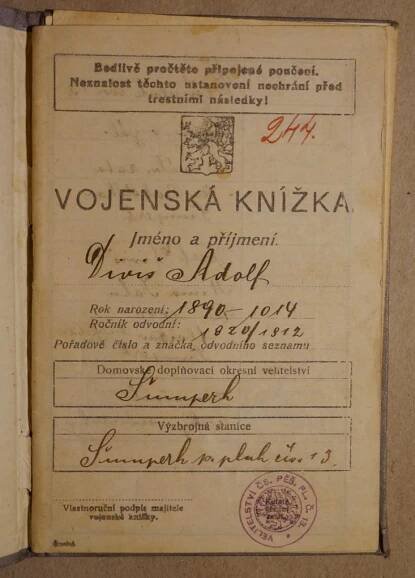 Bedlivě pročtěte připojené poučení.
Neznalost těchto ustanovení nechrání před
trestními následky!
244.
VOJENSKÁ KNÍŽKA.
Jméno a příjmení.
Diviš Adolf
Rok narození: 1890 – 1014
Ročník odvodní: 1920/1912
Pořadové číslo a značka odvodního seznamu
Domovské doplňovací okresní velitelství
Šumperk
Výzbrojná stanice
Šumperk p. pluk čís. 13.
Vlastnoruční podpis majitele
vojenské knížky.
VELITELSTVÍ ČS. PĚŠ. PL. Č. 13.